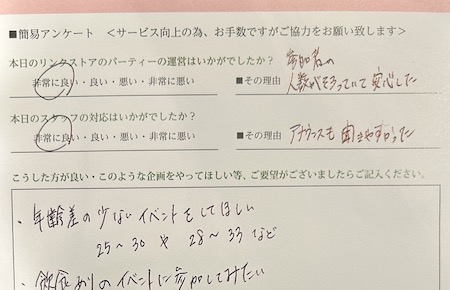 ■簡易アンケート <サービス向上の為、お手数ですがご協力をお願い致します>
本日のリンクストアのパーティーの運営はいかがでしたか?
参加者の
非常に良い・良い・悪い・非常に悪い ■その理由 人数がそろっていて安心した
本日のスタッフの対応はいかがでしたか?
非常に良い・良い・悪い・非常に悪い ■その理由 アナウンスも聞きやすかった
こうした方が良い・このような企画をやってほしい等、ご要望がございましたらご記入ください。
・年齢差の少ないイベントをしてほしい
25~30 や 28~33 など
・飲食ありのイベントに参加してみたい